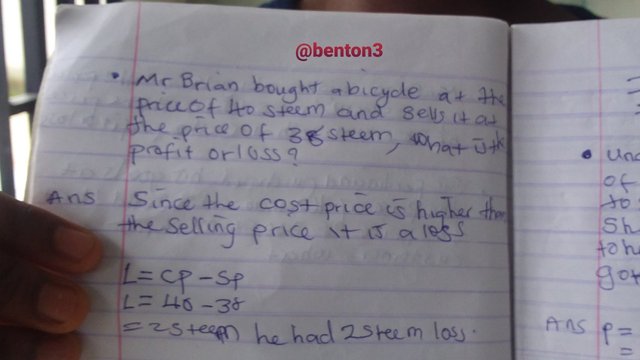 @benton3
• Mr Brian bought a bicycle at the
price of 40 steem and sells it at
the price of 38 steem, what is the
profit or loss?
Ans Since the cost price is higher than
the selling price it is a loss
L = CP - SP
L = 40 - 38
= 2 steem he had 2 steem loss.
• Unc
of
to
Sh
to h
got
Ans P =
=